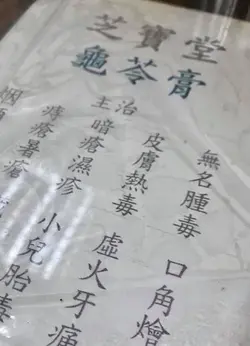 芝寶堂
龜苓膏
主治
無名腫毒 口角燴
皮膚熱毒 虛火牙痛
暗瘡濕疹 小兒胎毒
痔瘡暑瘡